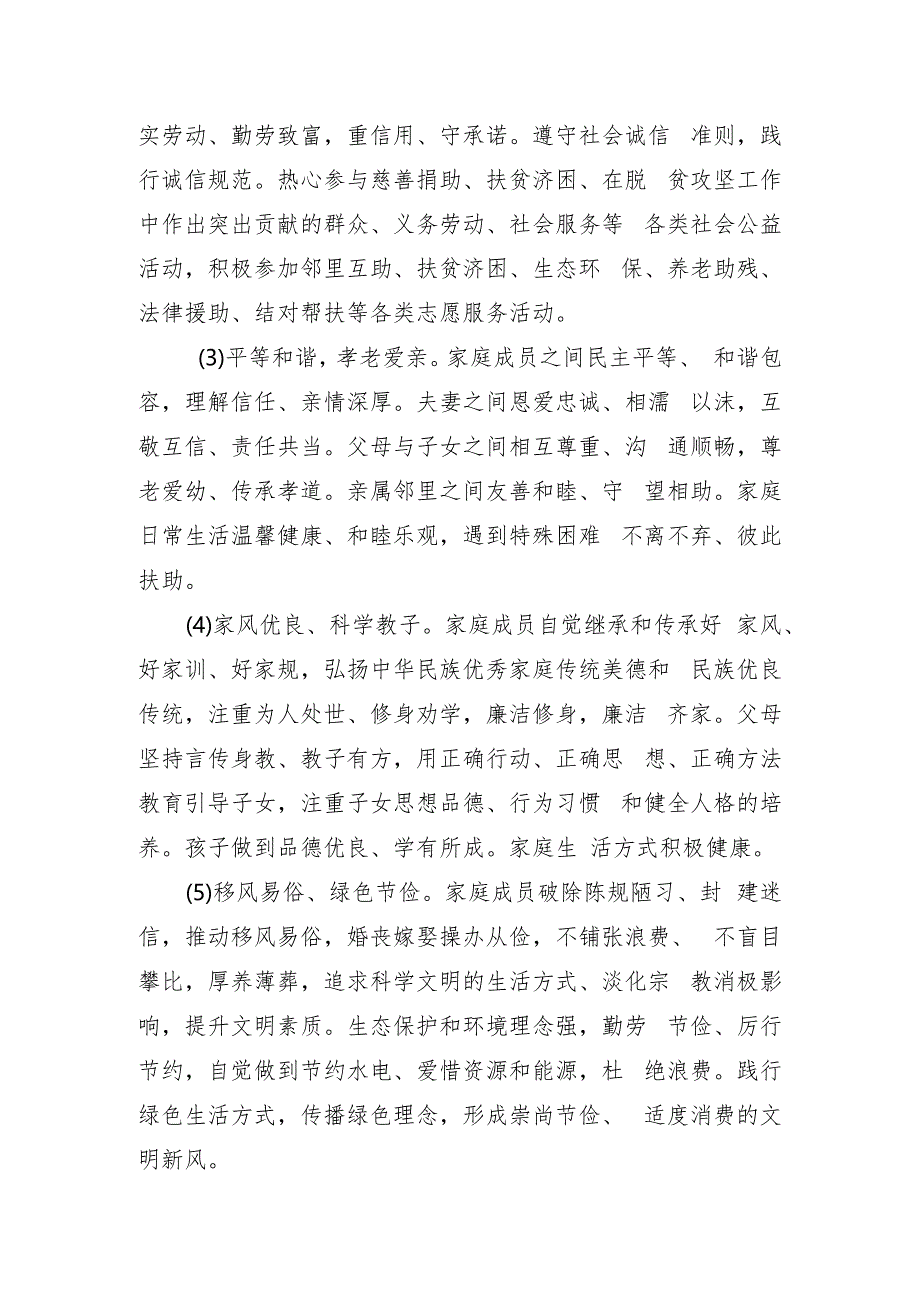 实劳动、勤劳致富，重信用、守承诺。遵守社会诚信 准则，践
行诚信规范。热心参与慈善捐助、扶贫济困、在脱 贫攻坚工作
中作出突出贡献的群众、义务劳动、社会服务等 各类社会公益
活动，积极参加邻里互助、扶贫济困、生态环 保、养老助残、
法律援助、结对帮扶等各类志愿服务活动。
(3)平等和谐，孝老爱亲。家庭成员之间民主平等、 和谐包
容，理解信任、亲情深厚。夫妻之间恩爱忠诚、相濡 以沫，互
敬互信、责任共当。父母与子女之间相互尊重、沟 通顺畅，尊
老爱幼、传承孝道。亲属邻里之间友善和睦、守 望相助。家庭
日常生活温馨健康、和睦乐观，遇到特殊困难 不离不弃、彼此
扶助。
(4)家风优良、科学教子。家庭成员自觉继承和传承好 家风、
好家训、好家规，弘扬中华民族优秀家庭传统美德和 民族优良
传统，注重为人处世、修身劝学，廉洁修身，廉洁 齐家。父母
坚持言传身教、教子有方，用正确行动、正确思 想、正确方法
教育引导子女，注重子女思想品德、行为习惯 和健全人格的培
养。孩子做到品德优良、学有所成。家庭生 活方式积极健康。
(5)移风易俗、绿色节俭。家庭成员破除陈规陋习、封 建迷
信，推动移风易俗，婚丧嫁娶操办从俭，不铺张浪费、 不盲目
攀比，厚养薄葬，追求科学文明的生活方式、淡化宗 教消极影
响，提升文明素质。生态保护和环境理念强，勤劳 节俭、厉行
节约，自觉做到节约水电、爱惜资源和能源，杜 绝浪费。践行
绿色生活方式，传播绿色理念，形成崇尚节俭、 适度消费的文
明新风。